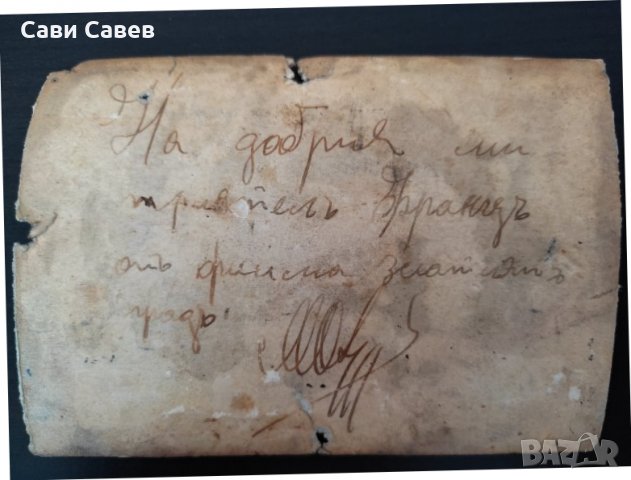 Сави Савев
На добрия ми
приятель Францъ
отъ филма златиятъ
градъ
BAZAR